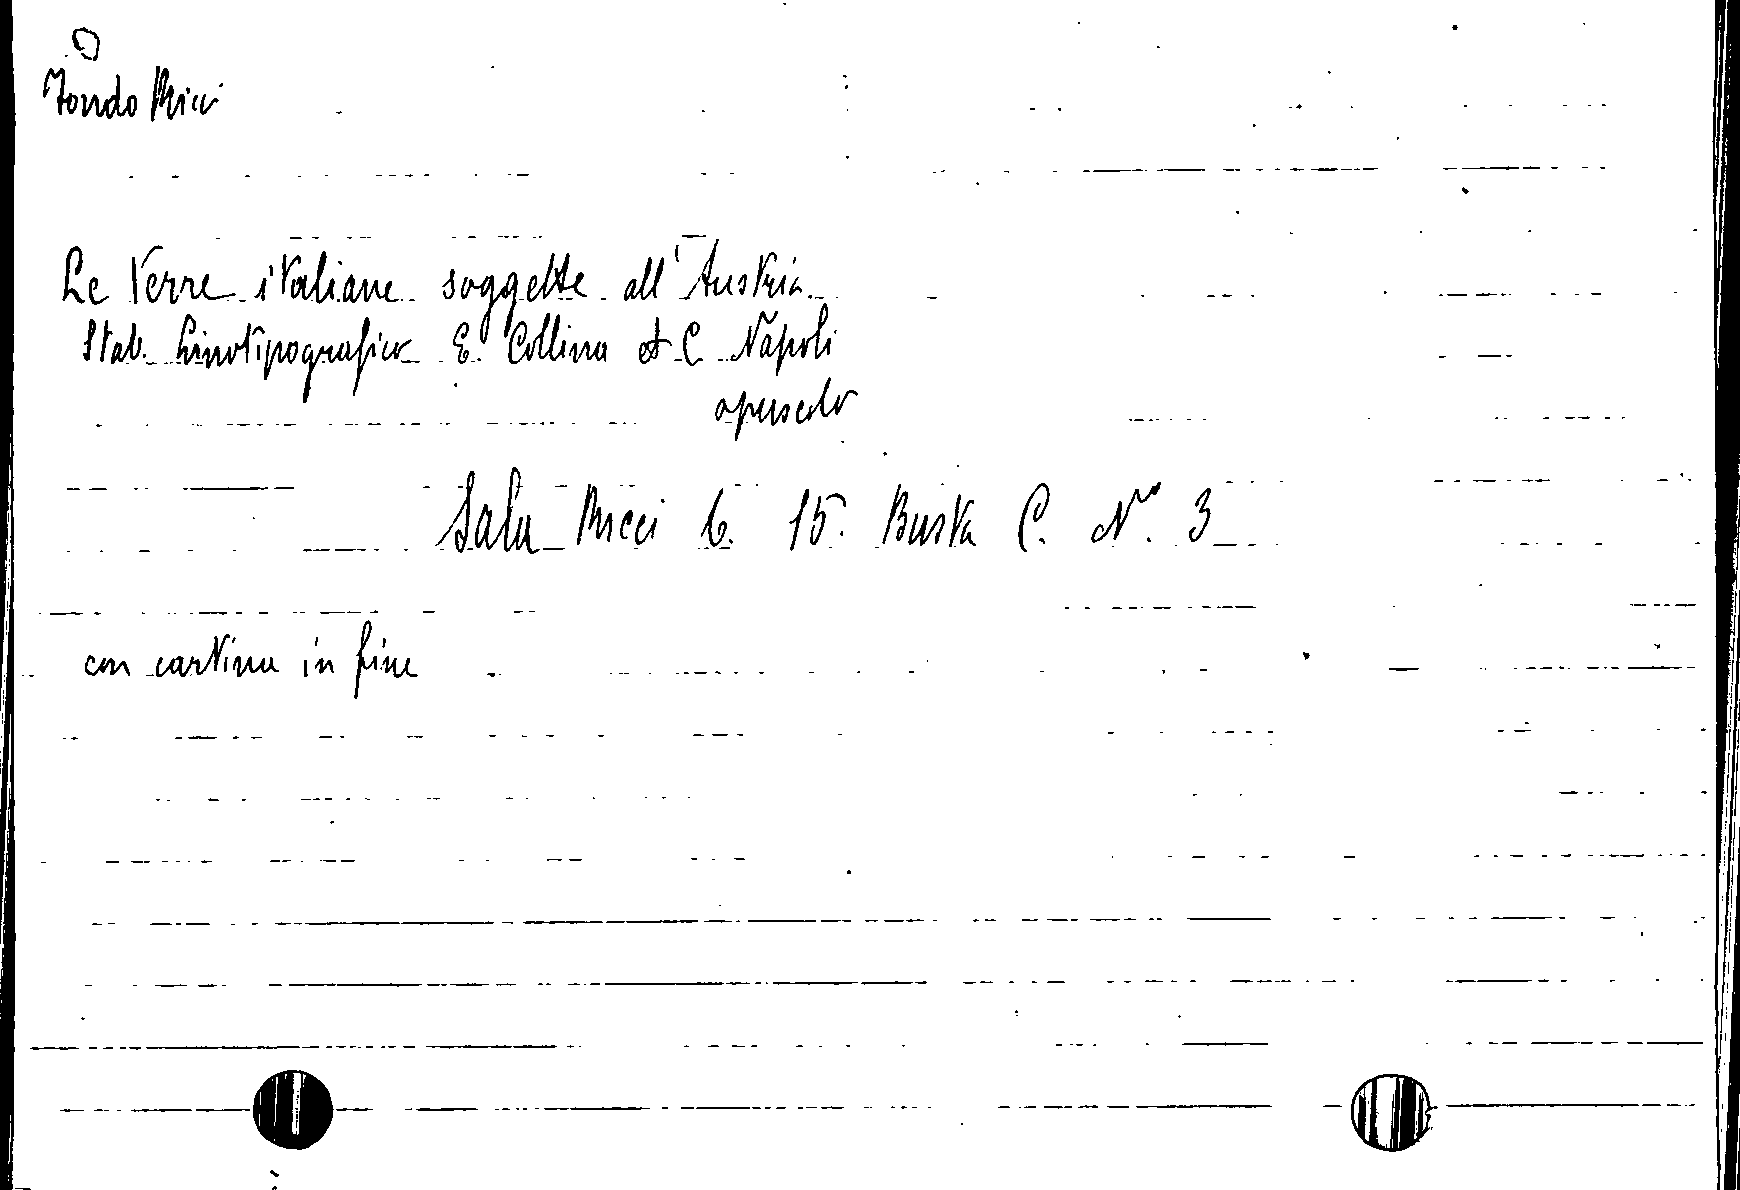 O
Fondo Ricci
Le Terre italiane soggette all'Austria.
Stab. Linotipografico E. Collina et C. Napoli
opuscolo
Sala Ricci b. 15. Busta C. N° 3
con cartina in fine